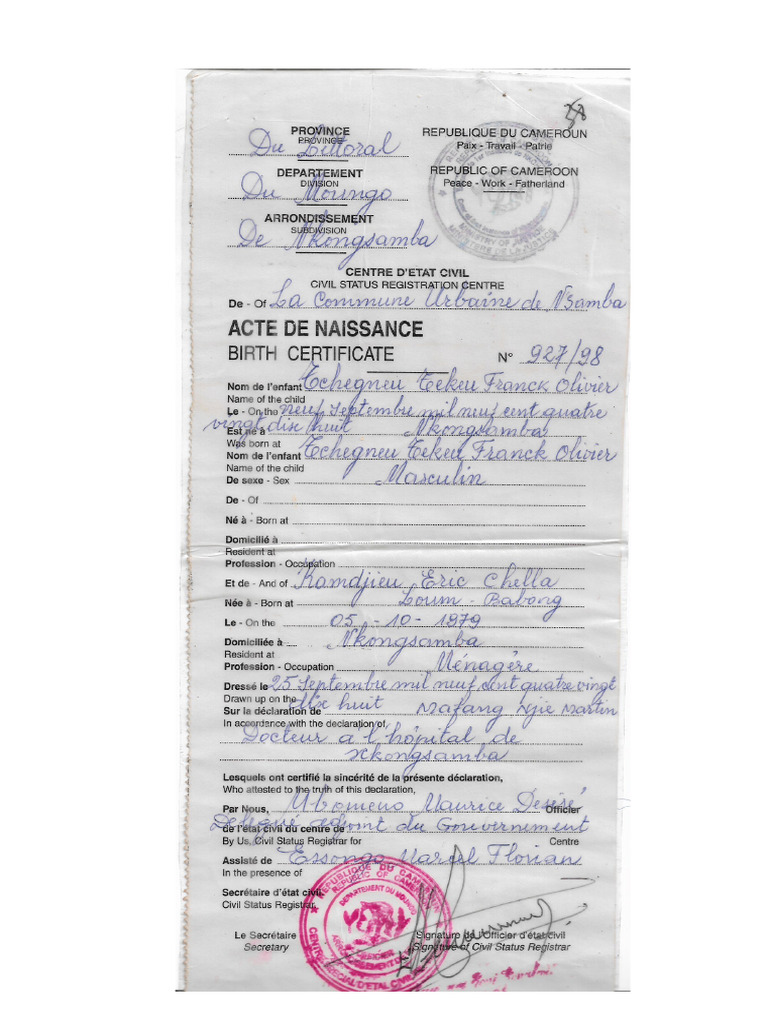 58
PROVINCE
PROVINCE
Du Littoral
DEPARTEMENT
DIVISION
Du Moungo
ARRONDISSEMENT
SUBDIVISION
De Nkongsamba
REPUBLIQUE DU CAMEROUN
Paix - Travail - Patrie
REPUBLIC OF CAMEROON
Peace - Work - Fatherland
MINISTRY OF JUSTICE
MINISTERE DE LA JUSTICE
CENTRE D'ETAT CIVIL
CIVIL STATUS REGISTRATION CENTRE
De - Of La Commune Urbaine de N'Samba
ACTE DE NAISSANCE
BIRTH CERTIFICATE N° 927/98
Nom de l'enfant Tchegneu Tekeu Franck Olivier
Name of the child
Le - On the neuf Septembre mil neuf cent quatre
vingt dix huit Nkongsamba
Est né à
Was born at
Nom de l'enfant Tchegneu Tekeu Franck Olivier
Name of the child
De sexe - Sex Masculin
De - Of
Né à - Born at
Domicilié à
Resident at
Profession - Occupation
Et de - And of Kamdjieu Eric Chella
Née à - Born at Loum - Babong
Le - On the 05 - 10 - 1979
Domiciliée à Nkongsamba
Resident at
Profession - Occupation Ménagère
Dressé le 25 Septembre mil neuf cent quatre vingt
Drawn up on the dix huit
Sur la déclaration de Mafang Njie Martin
In accordance with the declaration of
Docteur a l'hôpital de
Nkongsamba
Lesquels ont certifié la sincérité de la présente déclaration,
Who attested to the truth of this declaration,
Par Nous, Mbomeno Maurice Désésé Officier
de l'état civil du centre de Délégué adjoint du Gouvernement
By Us, Civil Status Registrar for Centre
Assisté de Essongo Marcel Florian
In the presence of
Secrétaire d'état civil
Civil Status Registrar,
REPUBLIQUE DU CAMEROUN
REPUBLIC OF CAMEROON
DEPARTEMENT DU MOUNGO
Le Secrétaire
Secretary
Signature de l'Officier d'état civil
Signature of Civil Status Registrar